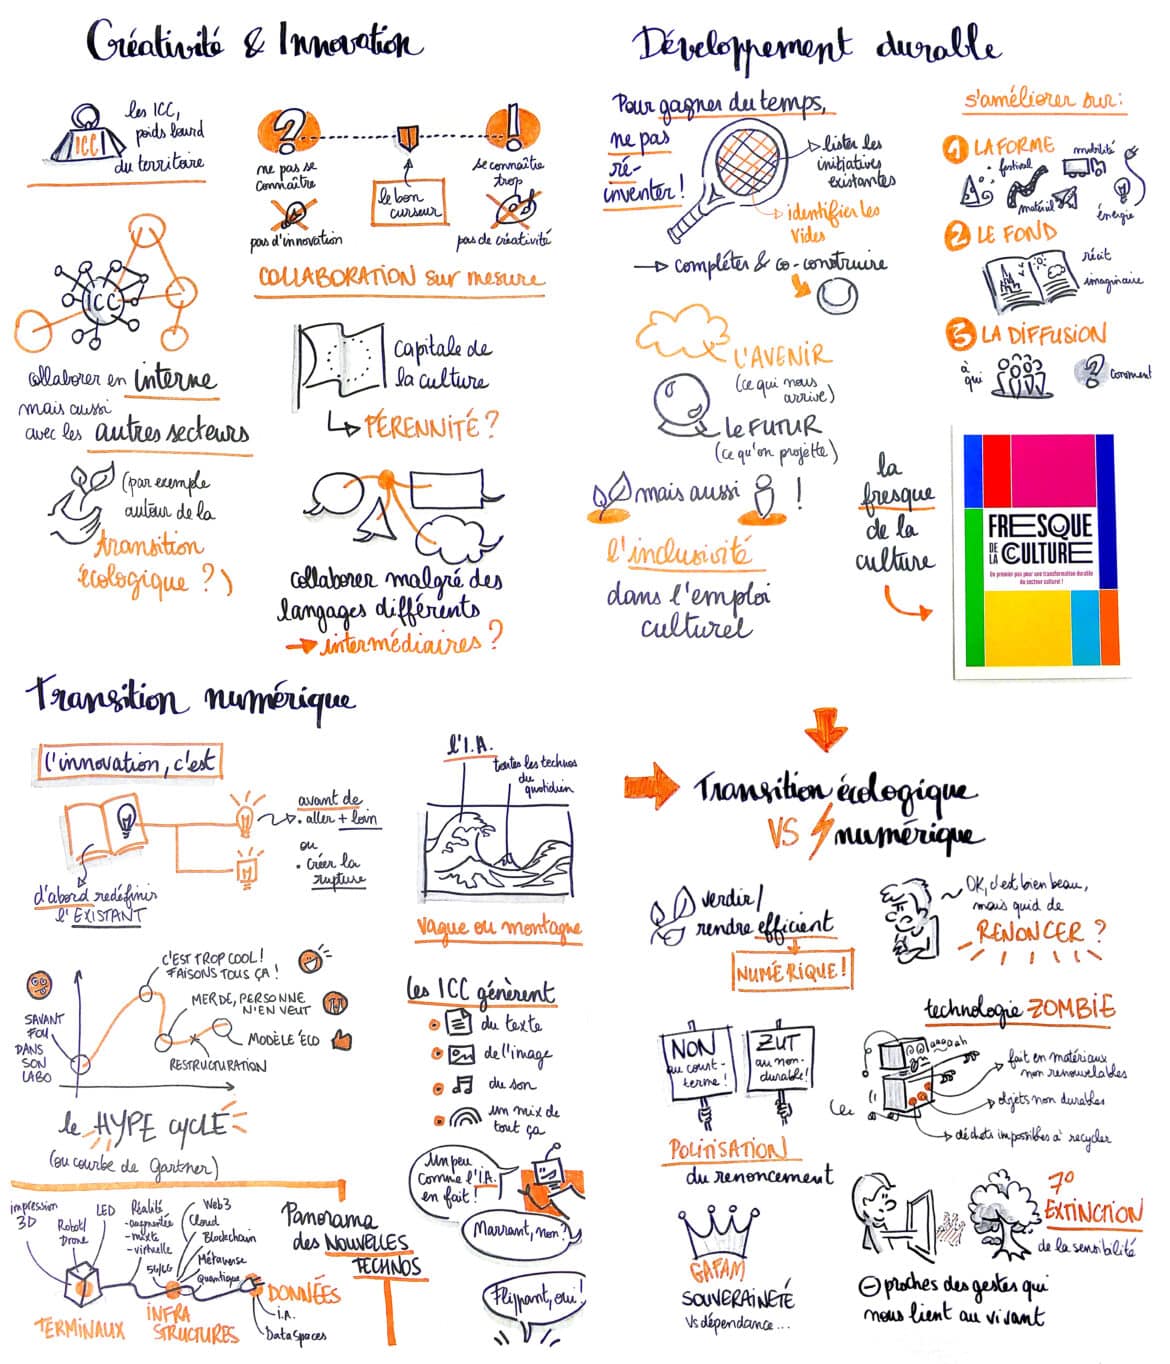 Créativité & Innovation
les ICC,
poids lourd
du territoire
ICC
?
!
ne pas se
connaître
pas d'innovation
le bon
curseur
se connaître
trop
pas de créativité
COLLABORATION sur mesure
ICC
collaborer en interne
mais aussi
avec les autres secteurs
(par exemple
autour de la
transition
écologique ?)
Capitale de
la culture
PÉRENNITÉ ?
collaborer malgré des
langages différents
intermédiaires ?
Développement durable
Pour gagner du temps,
ne pas
ré-
inventer !
lister les
initiatives
existantes
identifier les
vides
compléter & co-construire
L'AVENIR
(ce qui nous
arrive)
Le FUTUR
(ce qu'on projette)
mais aussi !
l'inclusivité
dans l'emploi
culturel
s'améliorer sur :
1 LA FORME
festival
mobilité
matériel
énergie
2 LE FOND
récit
imaginaire
3 LA DIFFUSION
à
qui
?
comment
la
fresque
de la
culture
FRESQUE
DE LA CULTURE
Un premier pas pour une transformation durable
du secteur culturel !
Transition numérique
l'innovation, c'est
d'abord redéfinir
l'EXISTANT
avant de
• aller + loin
ou
• créer la
rupture
l'I.A.
toutes les technos
du
quotidien
vague ou montagne
SAVANT
FOU
DANS
SON
LABO
C'EST TROP COOL !
FAISONS TOUS ÇA !
MERDE, PERSONNE
N'EN VEUT
MODÈLE ÉCO
RESTRUCTURATION
le HYPE CYCLE
(ou courbe de Gartner)
les ICC génèrent
du texte
de l'image
du son
un mix de
tout ça
Un peu
comme l'I.A.
en fait !
Marrant, non ?
Flippant, oui !
impression
3D
Robot/
Drone
LED
Réalité
- augmentée
- mixte
- virtuelle
5G/6G
Web3
Cloud
Blockchain
Métaverse
Quantique
TERMINAUX
INFRA
STRUCTURES
DONNÉES
I.A.
Data Spaces
Panorama
des NOUVELLES
TECHNOS
Transition écologique
VS numérique
verdir/
rendre efficient
NUMÉRIQUE !
OK, c'est bien beau,
mais quid de
RENONCER ?
NON
au court-
terme !
ZUT
au non-
durable !
POLITISATION
du renoncement
technologie ZOMBIE
fait en matériaux
non renouvelables
objets non durables
déchets impossibles à recycler
GAFAM
SOUVERAINETÉ
Vs dépendance...
7°
EXTINCTION
de la sensibilité
⊖ proches des gestes qui
nous lient au vivant